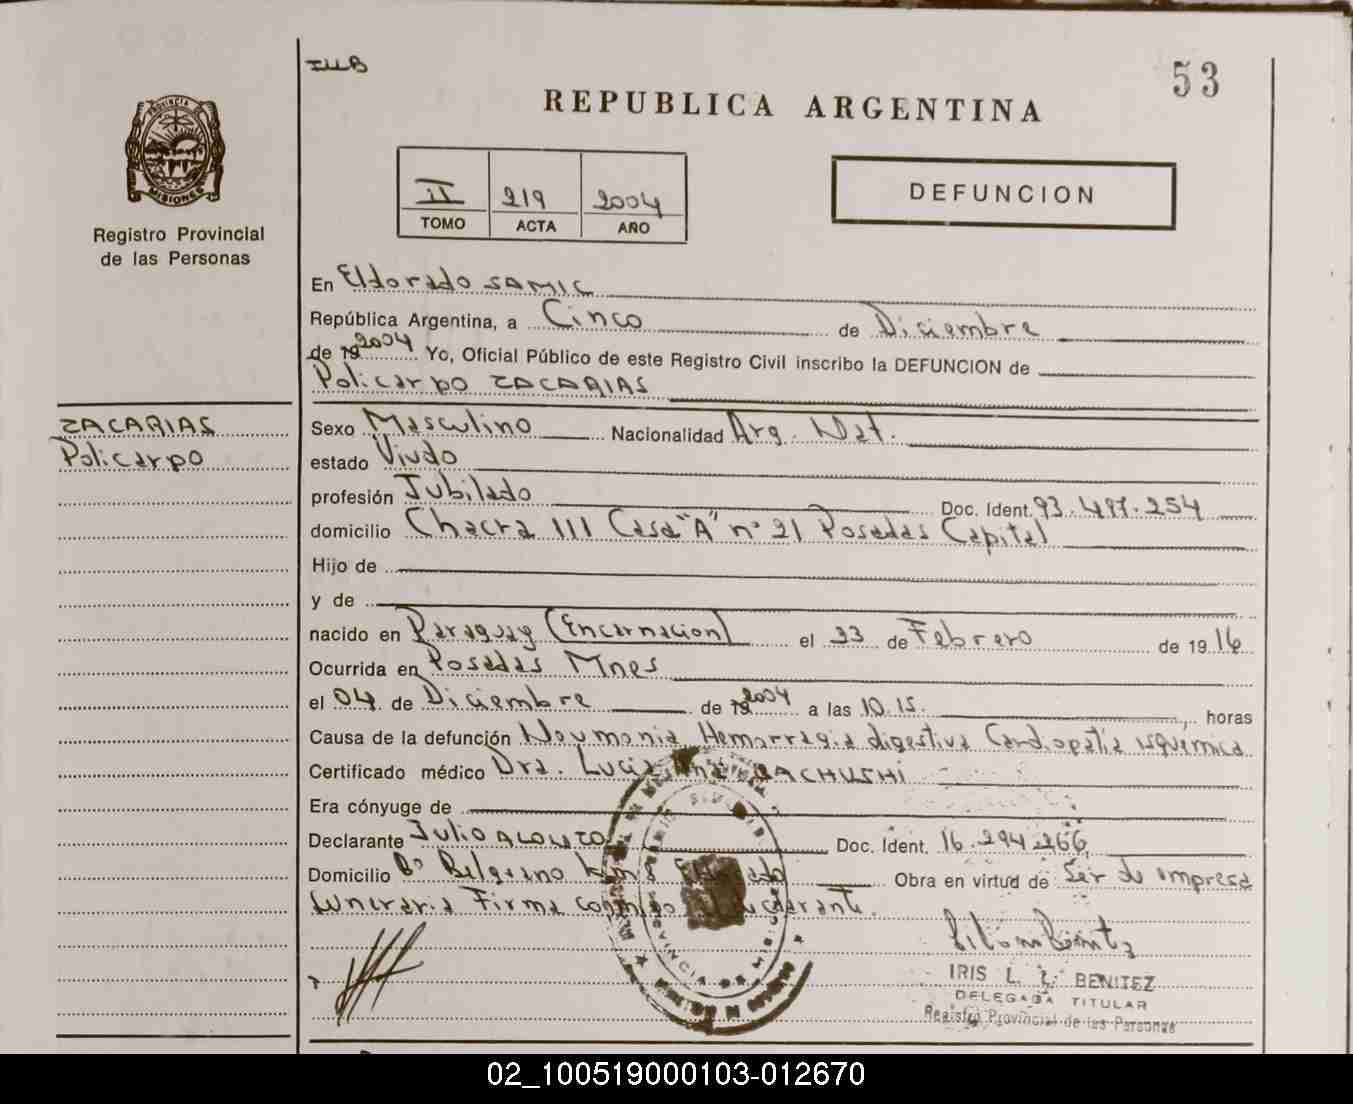 IllB
53
REPUBLICA ARGENTINA
PROVINCIA DE
MISIONES
Registro Provincial
de las Personas
II 219 2004
TOMO ACTA AÑO
DEFUNCION
En Eldorado SAMIC
República Argentina, a Cinco de Diciembre
de 19 2004 Yo, Oficial Público de este Registro Civil inscribo la DEFUNCION de
Policarpo ZACARIAS
ZACARIAS
Policarpo
Sexo Masculino Nacionalidad Arg. Nat.
estado Viudo
profesión Jubilado Doc. Ident. 93.497.254
domicilio Chacra 111 Casa "A" n° 21 Posadas Capital
Hijo de
y de
nacido en Paraguay (Encarnacion) el 23 de Febrero de 1916
Ocurrida en Posadas Mnes
el 04 de Diciembre de 19 2004 a las 10.15. horas
Causa de la defunción Neumonia Hemorragia digestiva Cardiopatia isquemica
Certificado médico Dra. BACHUSHI
Era cónyuge de
Declarante Julio ALONZO Doc. Ident. 16.294.266
Domicilio B° Belgrano km 8 Eldorado Obra en virtud de Ser de empresa
funeraria Firma conmigo el declarante.
IRIS L. BENITEZ
DELEGADA TITULAR
Registro Provincial de las Personas
PROVINCIA DE MISIONES
02_100519000103-012670